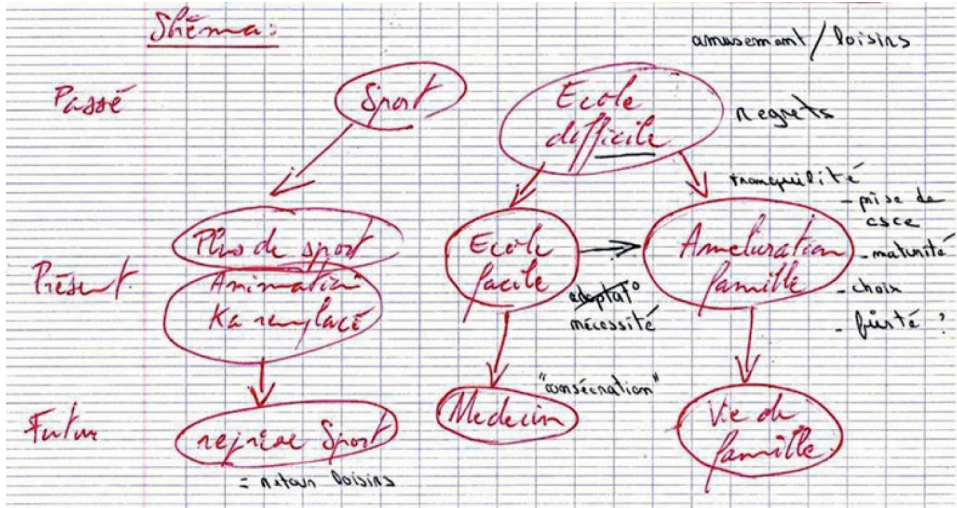 Shéma:
amusement / loisirs
Passé
Sport
Ecole
difficile
regrets
tranquilité
- prise de
csce
- maturité
- choix
- fierté ?
Présent
Plus de sport
Animation
Ka remplacé
Ecole
facile
adaptat°
nécessité
Amelioration
famille
Futur
reprise Sport
= retour loisirs
Medecin
"consécration"
Vie de
famille